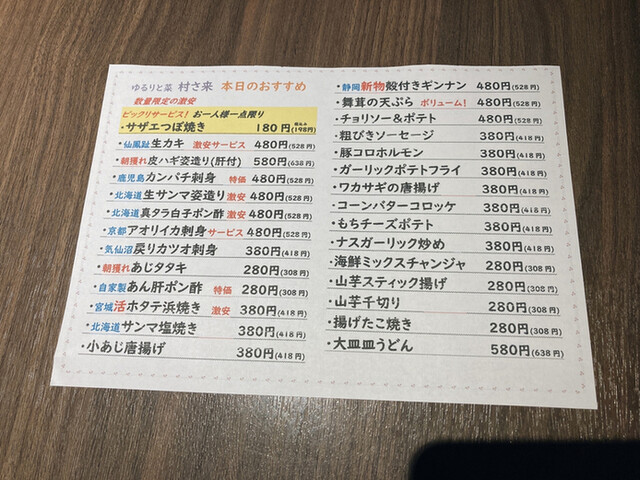 ゆるりと菜 村さ来 本日のおすすめ
数量限定の激安
ビックリサービス! お一人様一点限り
・サザエつぼ焼き 180円 税込み(198円)
・仙鳳趾 生カキ 激安サービス 480円(528円)
・朝獲れ 皮ハギ姿造り(肝付) 580円(638円)
・鹿児島 カンパチ刺身 特価 480円(528円)
・北海道 生サンマ姿造り 激安 480円(528円)
・北海道 真タラ白子ポン酢 激安 480円(528円)
・京都 アオリイカ刺身 サービス 480円(528円)
・気仙沼 戻りカツオ刺身 380円(418円)
・朝獲れ あじタタキ 280円(308円)
・自家製 あん肝ポン酢 特価 280円(308円)
・宮城 活ホタテ浜焼き 激安 380円(418円)
・北海道 サンマ塩焼き 380円(418円)
・小あじ唐揚げ 380円(418円)
・静岡 新物 殻付きギンナン 480円(528円)
・舞茸の天ぷら ボリューム! 480円(528円)
・チョリソー&ポテト 480円(528円)
・粗びきソーセージ 380円(418円)
・豚コロホルモン 380円(418円)
・ガーリックポテトフライ 380円(418円)
・ワカサギの唐揚げ 380円(418円)
・コーンバターコロッケ 380円(418円)
・もちチーズポテト 380円(418円)
・ナスガーリック炒め 380円(418円)
・海鮮ミックスチャンジャ 280円(308円)
・山芋スティック揚げ 280円(308円)
・山芋千切り 280円(308円)
・揚げたこ焼き 280円(308円)
・大皿皿うどん 580円(638円)